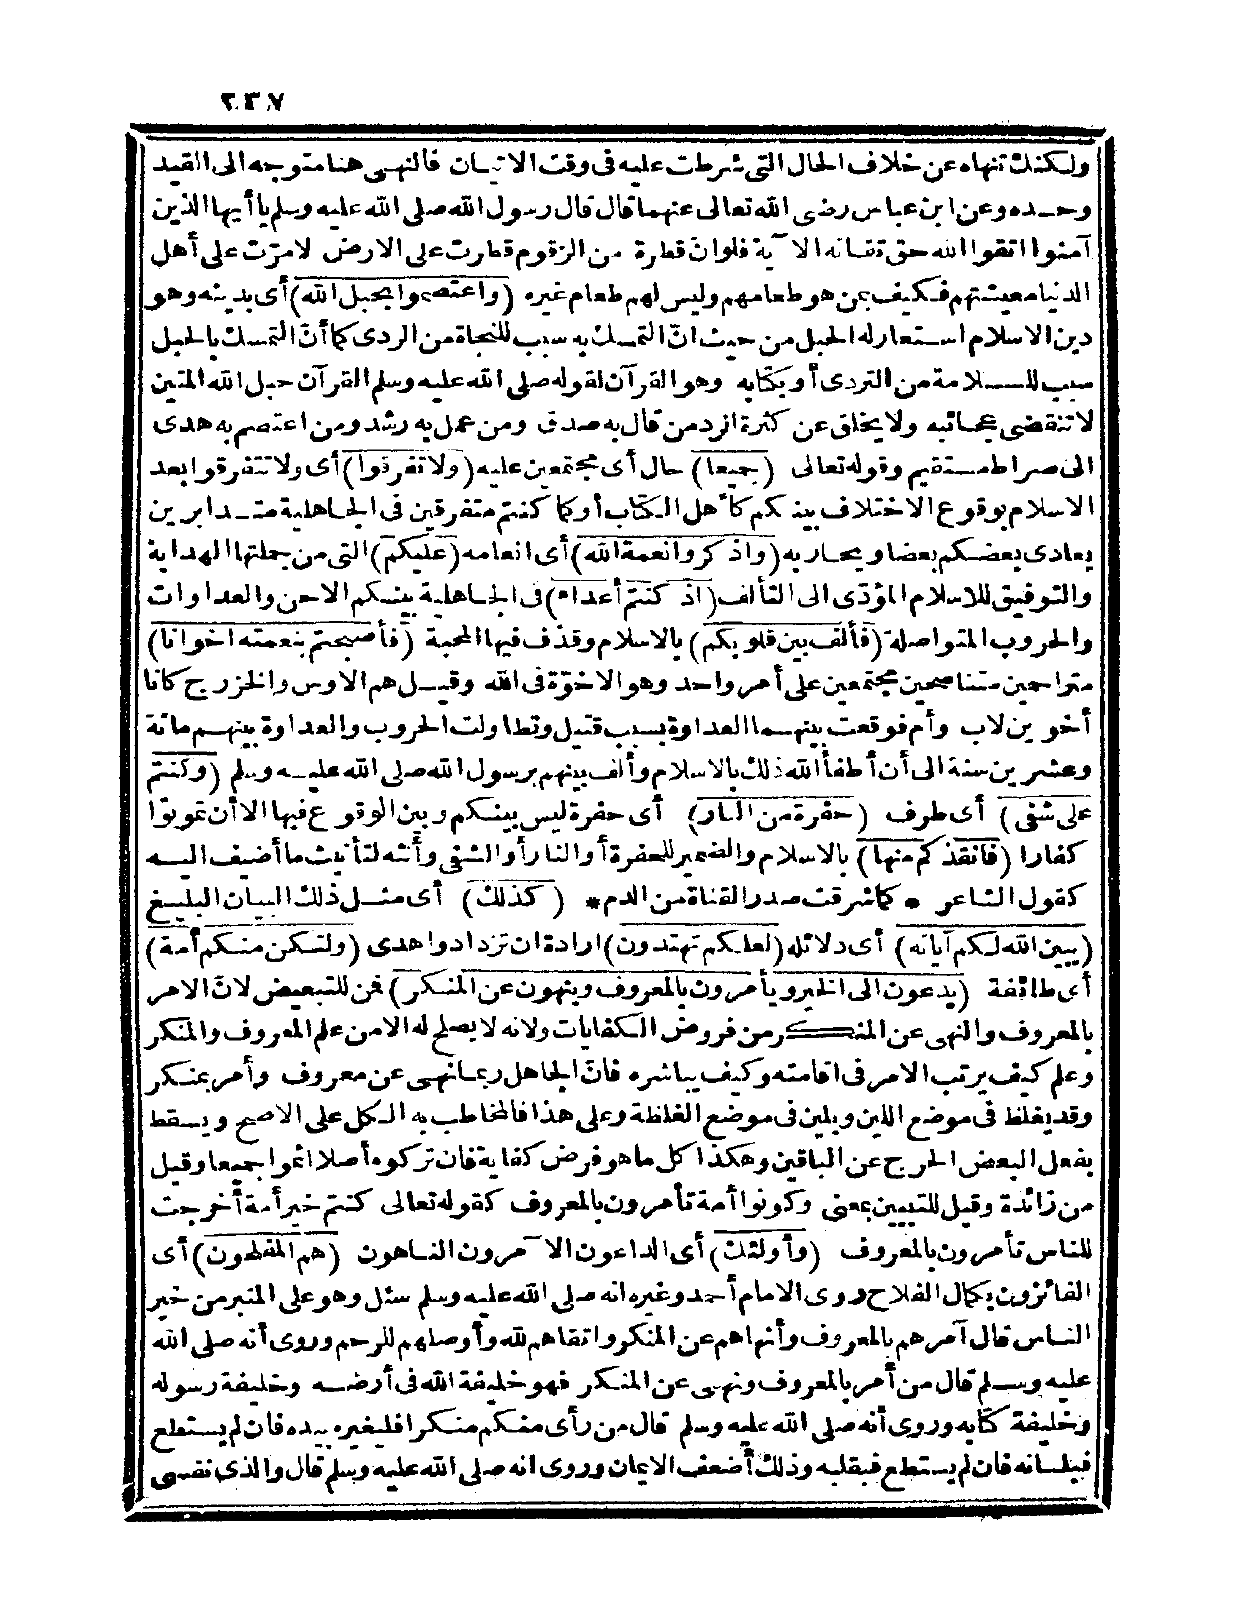 ٢٣٧
ولكنك تنهاه عن خلاف الحال التى شرطت عليه فى وقت الاتيان فالنهى هنا متوجه الى القيد
وحده وعن ابن عباس رضى الله تعالى عنهما قال قال رسول الله صلى الله عليه وسلم يا أيها الذين
آمنوا اتقوا الله حق تقاته الآية فلوانّ قطرة من الزقوم قطرت على الارض لامرّت على أهل
الدنيا معيشتهم فكيف بمن هو طعامهم وليس لهم طعام غيره (واعتصموا بحبل الله) أى بدينه وهو
دين الاسلام استعار له الحبل من حيث انّ التمسك به سبب للنجاة من الردى كما أنّ التمسك بالحبل
سبب للسلامة من التردى أو بكتابه وهو القرآن لقوله صلى الله عليه وسلم القرآن حبل الله المتين
لا تنقضى عجائبه ولا يخلق عن كثرة الرد من قال به صدق ومن عمل به رشد ومن اعتصم به هدى
الى صراط مستقيم وقوله تعالى (جميعا) حال أى مجتمعين عليه (ولا تفرقوا) أى ولا تتفرقوا بعد
الاسلام بوقوع الاختلاف بينكم كأهل الكتاب أو كما كنتم متفرقين فى الجاهلية متدابرين
يعادى بعضكم بعضا ويحاربه (واذكروا نعمة الله) أى انعامه (عليكم) التى من جملتها الهداية
والتوفيق للاسلام المؤدّى الى التألف (اذ كنتم أعداء) فى الجاهلية بينكم الاحن والعداوات
والحروب المتواصلة (فألف بين قلوبكم) بالاسلام وقذف فيها المحبة (فأصبحتم بنعمته اخوانا)
متراحمين متناصحين مجتمعين على أمر واحد وهو الاخوّة فى الله وقيل هم الاوس والخزرج كانا
أخوين لاب وأم فوقعت بينهما العداوة بسبب قتيل وتطاولت الحروب والعداوة بينهم مائة
وعشرين سنة الى أن أطفأ الله ذلك بالاسلام وألف بينهم برسول الله صلى الله عليه وسلم (وكنتم
على شفى) أى طرف (حفرة من النار) أى حفرة ليس بينكم وبين الوقوع فيها الا أن تموتوا
كفارا (فانقذكم منها) بالاسلام والضمير للحفرة أو النار أو الشفى وأنثه لتأنيث ما أضيف اليه
كقول الشاعر * كما شرقت صدر القناة من الدم * (كذلك) أى مثل ذلك البيان البليغ
(يبين الله لكم آياته) أى دلائله (لعلكم تهتدون) ارادة ان تزدادوا هدى (ولتكن منكم أمة)
أى طائفة (يدعون الى الخير ويأمرون بالمعروف وينهون عن المنكر) فمن للتبعيض لانّ الامر
بالمعروف والنهى عن المنكر من فروض الكفايات ولانه لا يصلح له الا من علم المعروف والمنكر
وعلم كيف يرتب الامر فى اقامته وكيف يباشره فانّ الجاهل ربما نهى عن معروف وأمر بمنكر
وقد يغلظ فى موضع اللين ويلين فى موضع الغلظة وعلى هذا فالمخاطب به الكل على الاصح ويسقط
بفعل البعض الحرج عن الباقين وهكذا كل ما هو فرض كفاية فان تركوه أصلا اثموا جميعا وقيل
من زائدة وقيل للتبيين بمعنى وكونوا أمة تأمرون بالمعروف كقوله تعالى كنتم خير أمة أخرجت
للناس تأمرون بالمعروف (وأولئك) أى الداعون الآمرون الناهون (هم المفلحون) أى
الفائزون بكمال الفلاح روى الامام أحمد وغيره انه صلى الله عليه وسلم سئل وهو على المنبر من خير
الناس قال آمرهم بالمعروف وأنهاهم عن المنكر واتقاهم لله وأوصلهم للرحم وروى أنه صلى الله
عليه وسلم قال من أمر بالمعروف ونهى عن المنكر فهو خليفة الله فى أرضه وخليفة رسوله
وخليفة كتابه وروى أنه صلى الله عليه وسلم قال من رأى منكم منكرا فليغيره بيده فان لم يستطع
فبلسانه فان لم يستطع فبقلبه وذلك أضعف الايمان وروى انه صلى الله عليه وسلم قال والذى نفسى